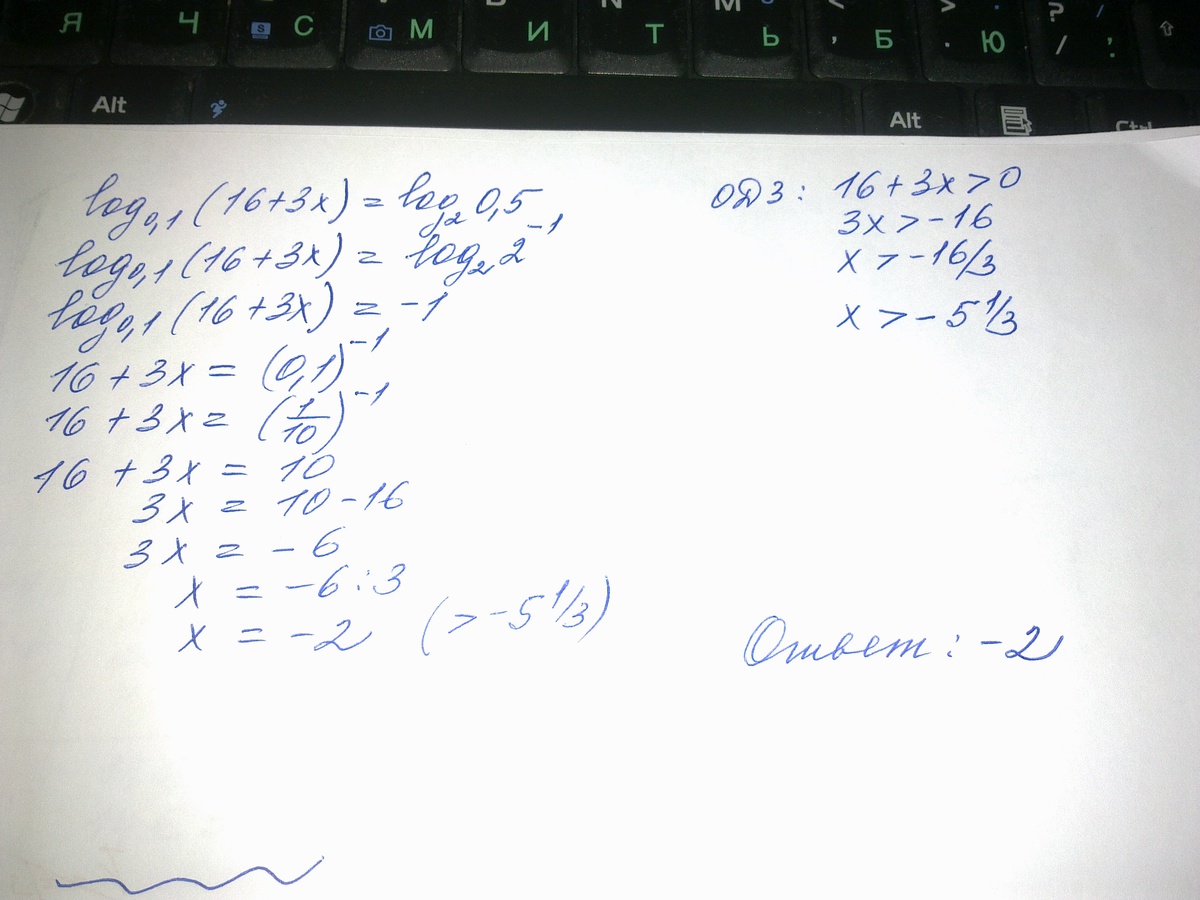 Я Ч S С М И Т Ь , Б . Ю ? / / ,
Alt Alt Ctrl
log₀,₁(16+3x) = log₂0,5
log₀,₁(16+3x) = log₂2⁻¹
log₀,₁(16+3x) = -1
16+3x = (0,1)⁻¹
16+3x = (1/10)⁻¹
16+3x = 10
3x = 10-16
3x = -6
x = -6:3
x = -2 (>-5 1/3)
ОДЗ: 16+3x>0
3x>-16
x>-16/3
x>-5 1/3
Ответ: -2